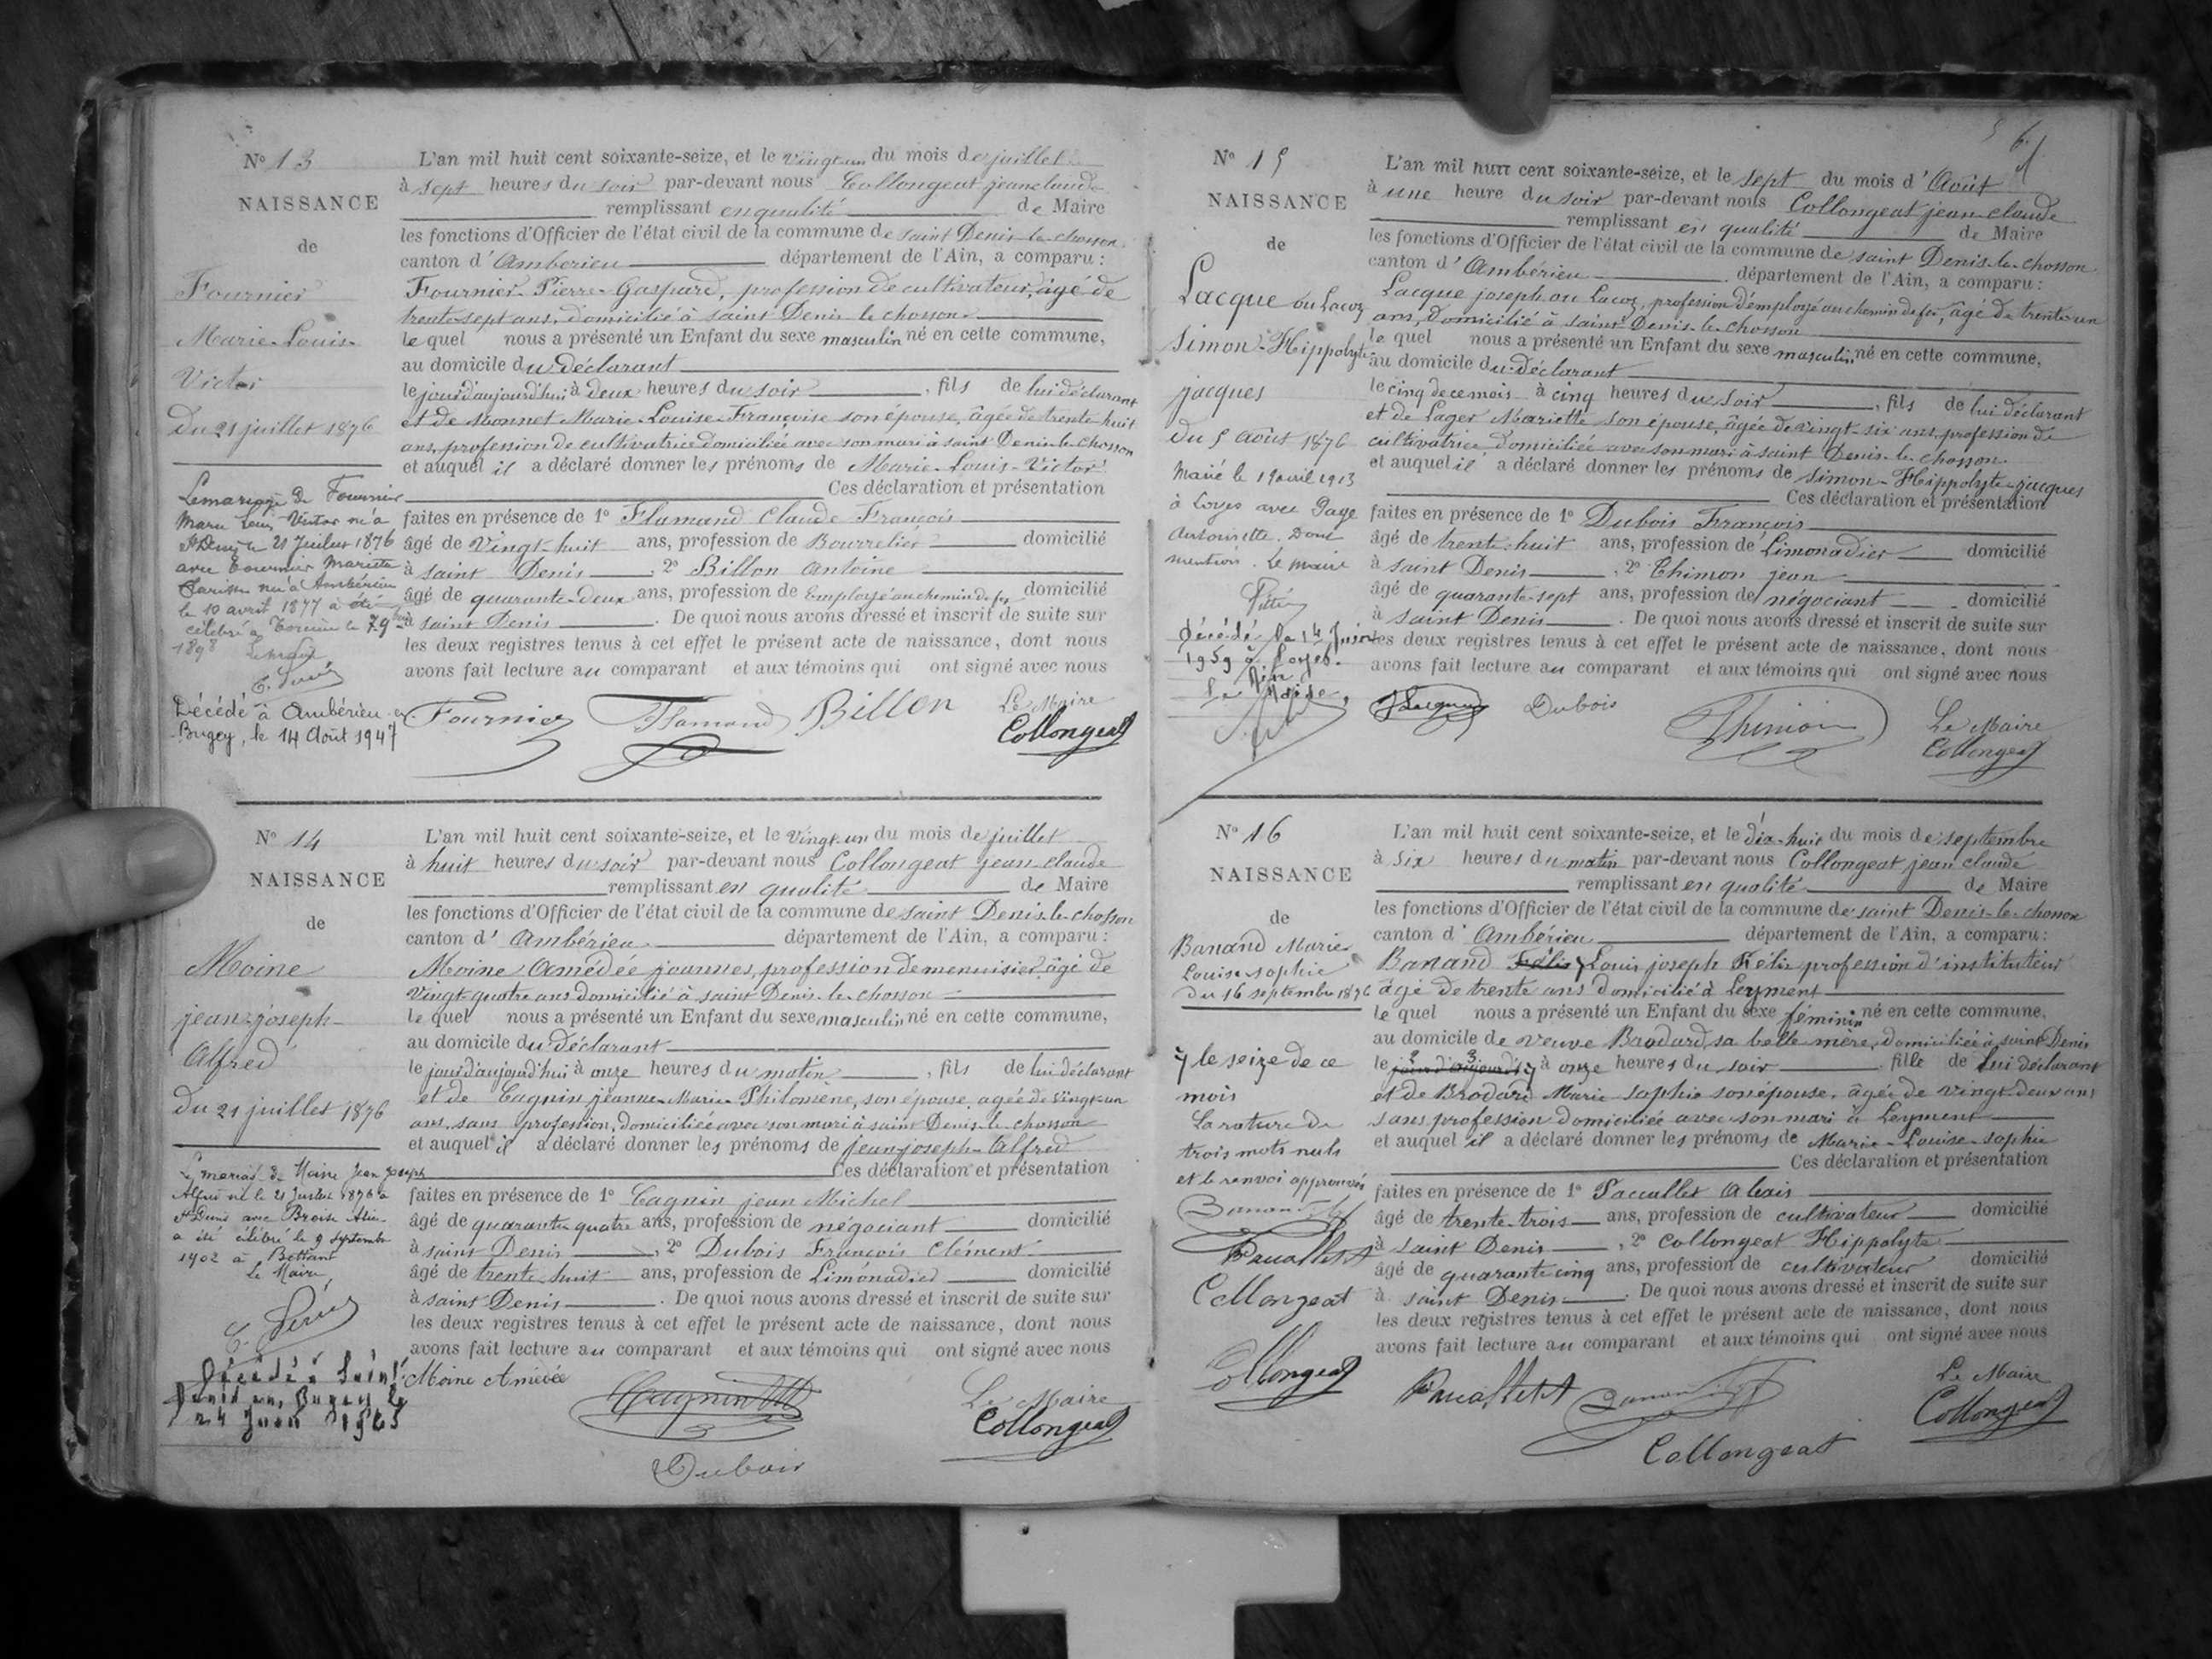 N° 13
NAISSANCE
de
Fournier
Marie-Louis-
Victor
du 21 juillet 1876
Le mariage de Fournier
Marie Louis Victor né à
St Denis le 21 Juillet 1876
avec Tournier Marietta
née à Ambérieu
le 10 avril 1877 à été
célébré à le 79
1898 Le maire
Décédé à Ambérieu en
Bugey, le 14 Août 1947
L'an mil huit cent soixante-seize, et le vingt-un du mois de juillet
à sept heures du soir par-devant nous Collongeat jean claude
remplissant en qualité de Maire
les fonctions d'Officier de l'état civil de la commune de saint Denis-le-chosson
canton d'Ambérieu département de l'Ain, a comparu :
Fournier Pierre-Gaspard, profession de cultivateur, âgé de
trente-sept ans, domicilié à saint Denis le chosson
le quel nous a présenté un Enfant du sexe masculin né en cette commune,
au domicile du déclarant
le jourd'aujourd'hui à deux heures du soir, fils de lui déclarant
et de Monnet Marie-Louise-Françoise son épouse, âgée de trente huit
ans, profession de cultivatrice domiciliée avec son mari à saint Denis-le-chosson
et auquel il a déclaré donner les prénoms de Marie-Louis-Victor
Ces déclaration et présentation
faites en présence de 1° Flamand Claude François
âgé de vingt-huit ans, profession de Bourrelier domicilié
à saint Denis, 2° Billon Antoine
âgé de quarante-deux ans, profession de Employé au chemin de fer domicilié
à saint Denis. De quoi nous avons dressé et inscrit de suite sur
les deux registres tenus à cet effet le présent acte de naissance, dont nous
avons fait lecture au comparant et aux témoins qui ont signé avec nous
Fournier Flamand Billon Le Maire
Collongeat
N° 14
NAISSANCE
de
Moine
jean-joseph-
Alfred
du 21 juillet 1876
Le mariage de Moine Jean Joseph
Alfred né le 21 Juillet 1876 à
St Denis avec Broise
a été célébré le 9 septembre
1902 à Bettant
Le Maire,
Décédé à Saint
Denis en Bugey le
24 Juin
L'an mil huit cent soixante-seize, et le vingt-un du mois de juillet
à huit heures du soir par-devant nous Collongeat jean claude
remplissant en qualité de Maire
les fonctions d'Officier de l'état civil de la commune de saint Denis-le-chosson
canton d'Ambérieu département de l'Ain, a comparu :
Moine Amédée joannes, profession de menuisier, âgé de
vingt quatre ans domicilié à saint Denis-le-chosson
le quel nous a présenté un Enfant du sexe masculin né en cette commune,
au domicile du déclarant
le jourd'aujourd'hui à onze heures du matin, fils de lui déclarant
et de Cagnin jeanne-Marie-Philomène, son épouse, agée de vingt-un
ans, sans profession, domiciliée avec son mari à saint Denis-le-chosson
et auquel il a déclaré donner les prénoms de jean-joseph-Alfred
Ces déclaration et présentation
faites en présence de 1° Cagnin jean Michel
âgé de quarante quatre ans, profession de négociant domicilié
à saint Denis, 2° Dubois François Clément
âgé de trente-huit ans, profession de Limonadier domicilié
à saint Denis. De quoi nous avons dressé et inscrit de suite sur
les deux registres tenus à cet effet le présent acte de naissance, dont nous
avons fait lecture au comparant et aux témoins qui ont signé avec nous
Moine Amédée Cagnin Le Maire
Collongeat
Dubois
N° 15
NAISSANCE
de
Lacque ou Lacoz
Simon-Hippolyte
jacques
du 5 Août 1876
Marié le 19 avril 1913
à Loyes avec Page
Antoinette. Dont
mention. Le maire
Décédé le 14 Juin
1959 à Loyes
Ain
Le Maire,
L'an mil huit cent soixante-seize, et le sept du mois d'Août
à une heure du soir par-devant nous Collongeat jean-claude
remplissant en qualité de Maire
les fonctions d'Officier de l'état civil de la commune de saint Denis-le-chosson
canton d'Ambérieu département de l'Ain, a comparu :
Lacque joseph ou Lacoz, profession d'employé au chemin de fer, âgé de trente-un
ans, domicilié à saint Denis-le-chosson
le quel nous a présenté un Enfant du sexe masculin né en cette commune,
au domicile du déclarant
le cinq de ce mois à cinq heures du soir, fils de lui déclarant
et de Lager Mariette son épouse, âgée de vingt-six ans, profession de
cultivatrice, domiciliée avec son mari à saint Denis-le-chosson
et auquel il a déclaré donner les prénoms de Simon-Hippolyte-jacques
Ces déclaration et présentation
faites en présence de 1° Dubois François
âgé de trente-huit ans, profession de Limonadier domicilié
à saint Denis, 2° Thimon jean
âgé de quarante-sept ans, profession de négociant domicilié
à saint Denis. De quoi nous avons dressé et inscrit de suite sur
les deux registres tenus à cet effet le présent acte de naissance, dont nous
avons fait lecture au comparant et aux témoins qui ont signé avec nous
Dubois Thimon Le Maire
Collongeat
N° 16
NAISSANCE
de
Banand Marie
Louise-sophie
du 16 septembre 1876
y le seize de ce
mois
La rature de
trois mots nuls
et le renvoi approuvés
Collongeat
Collongeat
L'an mil huit cent soixante-seize, et le dix-huit du mois de septembre
à six heures du matin par-devant nous Collongeat jean claude
remplissant en qualité de Maire
les fonctions d'Officier de l'état civil de la commune de saint Denis-le-chosson
canton d'Ambérieu département de l'Ain, a comparu :
Banand Félix Louis joseph Félix profession d'instituteur
âgé de trente ans domicilié à Leyment
le quel nous a présenté un Enfant du sexe féminin né en cette commune,
au domicile de veuve Brodard, sa belle mère, domiciliée à saint Denis
le jour d'aujourd'hui y à onze heures du soir fille de lui déclarant
et de Brodard Marie sophie son épouse, âgée de vingt-deux ans
sans profession domiciliée avec son mari à Leyment
et auquel il a déclaré donner les prénoms de Marie-Louise-sophie
Ces déclaration et présentation
faites en présence de 1° Paccallet
âgé de trente-trois ans, profession de cultivateur domicilié
à saint Denis, 2° Collongeat Hippolyte
âgé de quarante cinq ans, profession de cultivateur domicilié
à saint Denis. De quoi nous avons dressé et inscrit de suite sur
les deux registres tenus à cet effet le présent acte de naissance, dont nous
avons fait lecture au comparant et aux témoins qui ont signé avec nous
Le Maire
Collongeat
Collongeat